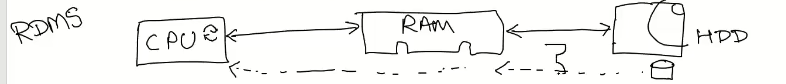 RDMS
CPU
RAM
HDD